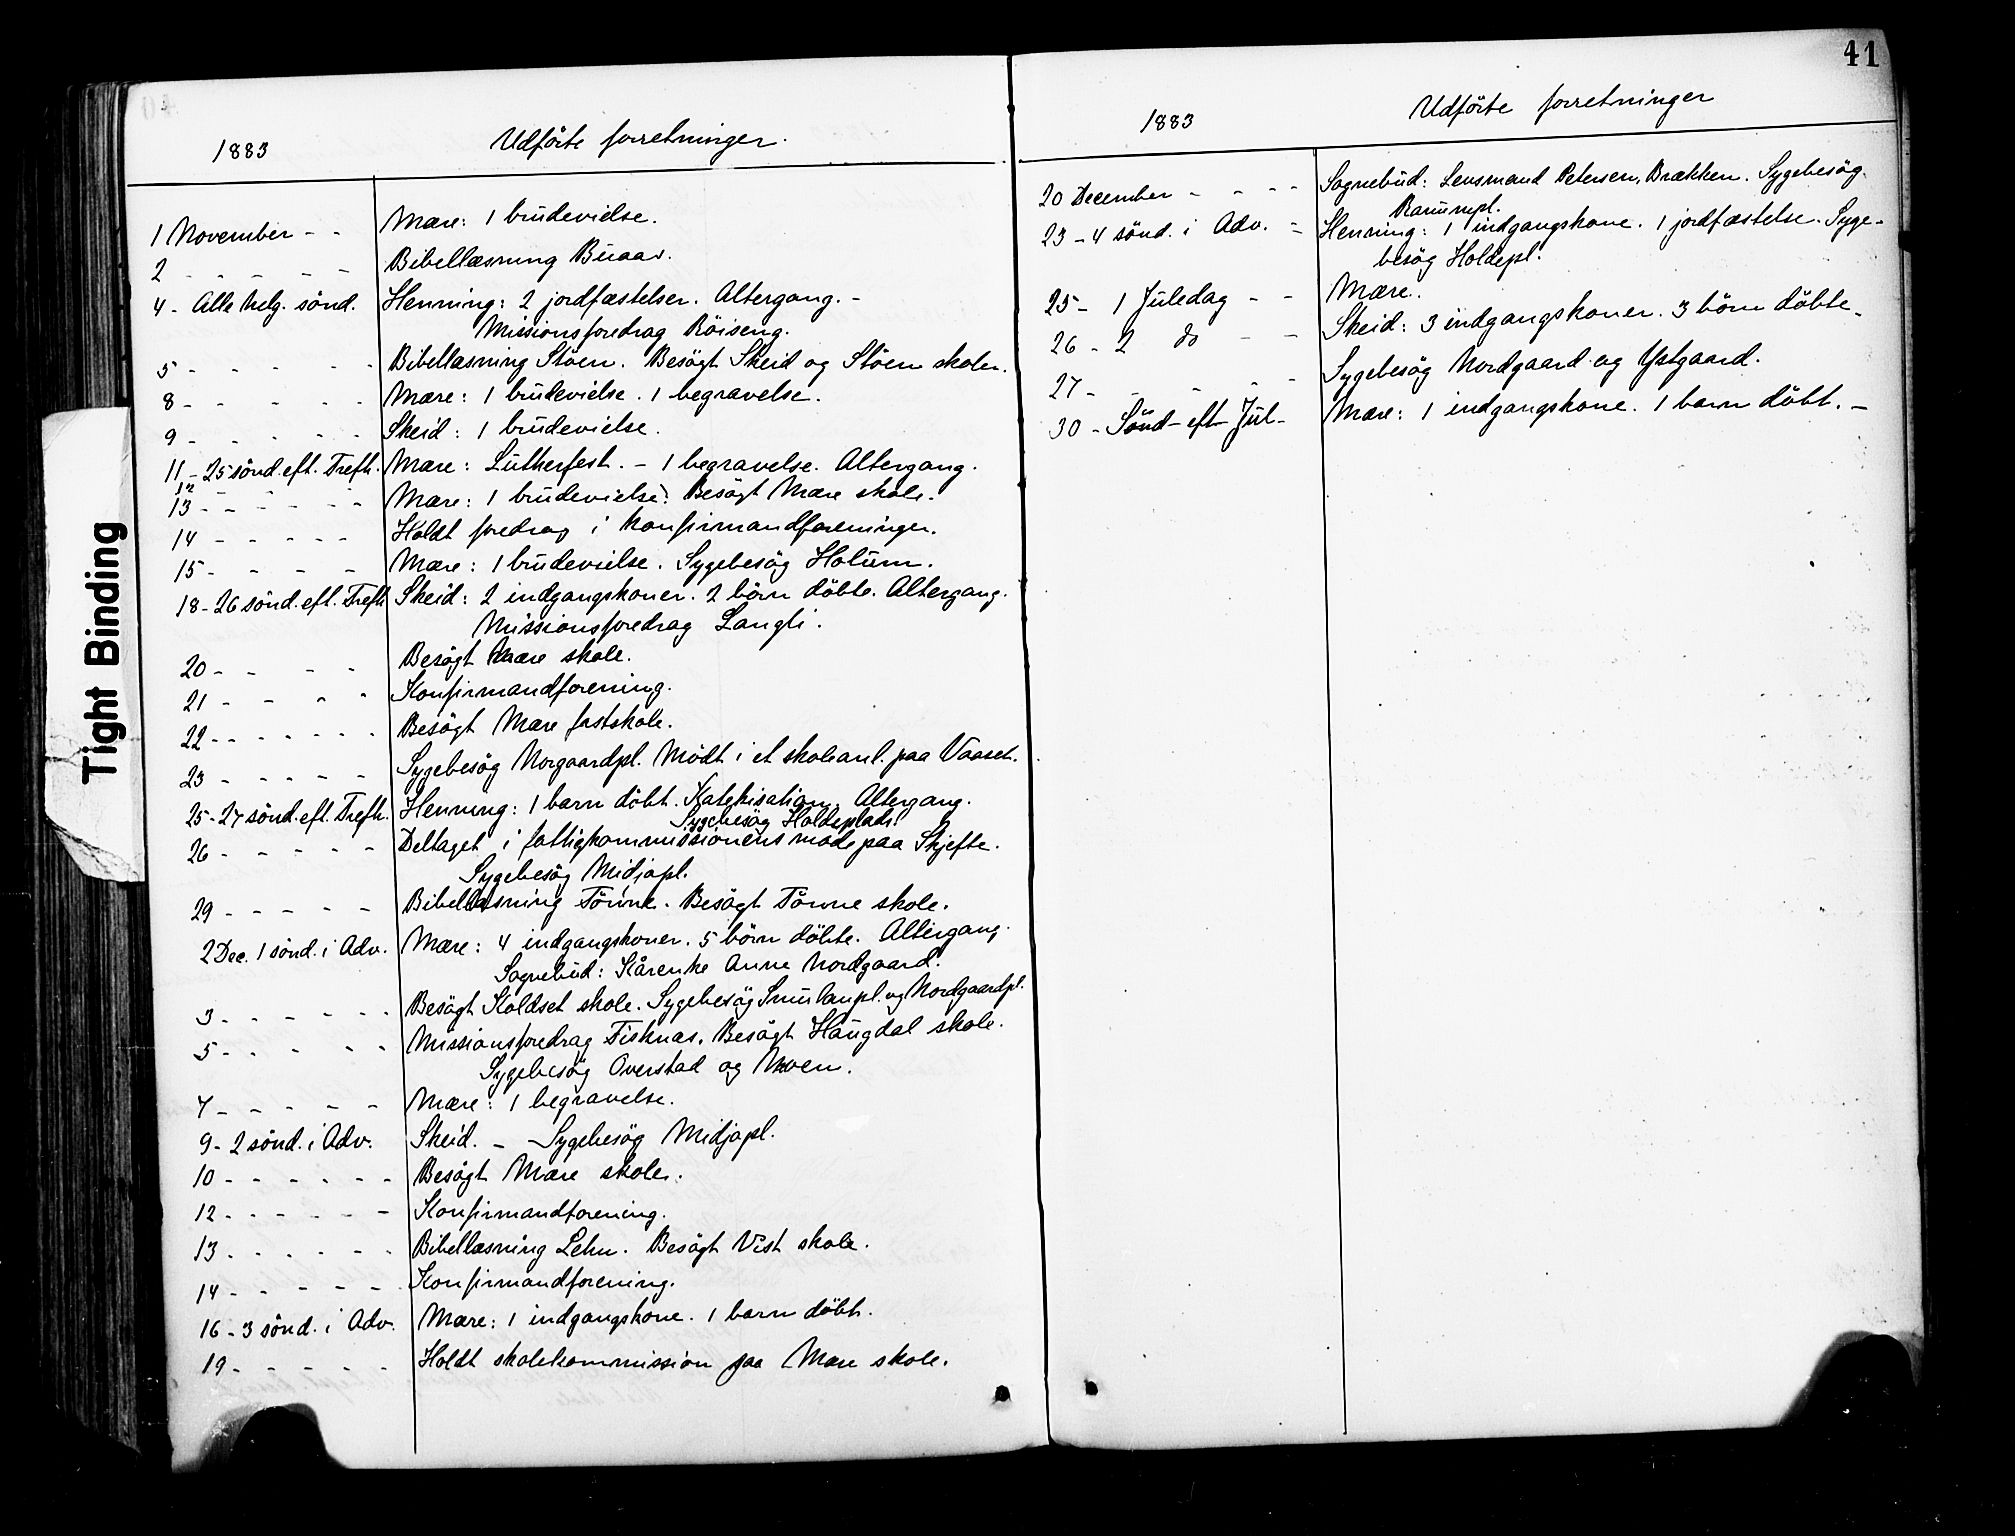 41
1883 Udförte forretninger.
1 November - - Mære: 1 brudevielse.
2 - - - - - Bibellæsning Buaas.
4 - Alle helg. sönd. Henning: 2 jordfæstelser. Altergang. -
Missionsforedrag Röiseng.
5 - - - - - Bibellæsning Stöen. Besögt Skeid og Stöen skoler.
8 - - - - - Mære: 1 brudevielse. 1 begravelse.
9 - - - - - Skeid: 1 brudevielse.
11 - 25 sönd. eft. Trefh. Mære: Lutherfest. - 1 begravelse. Altergang.
12
13 - - - - - Mære: 1 brudevielse. Besögt Mære skole.
14 - - - - - Holdt foredrag i konfirmandforeningen.
15 - - - - Mære: 1 brudevielse. Sygebesög Holum.
18 - 26 sönd. eft. Trefh Skeid: 2 indgangskoner. 2 börn döbte. Altergang.
Missionsforedrag Langli.
20 - - - - Besögt Mære skole.
21 - - - - Konfirmandforening.
22 - - - - - - Besögt Mære fastskole.
23 - - - - - Sygebesög Norgaardpl. Mödt i et skoleanl. paa Vaaset.
25 - 27 sönd. eft. Trefh. Henning: 1 barn döbt. Katekisation. Altergang.
Sygebesög Holdeplads.
26 - - - - - Deltaget i fattigkommissionens möde paa Skjefte.
Sygebesög Midjapl.
29 - - - - - Bibellæsning Tönne. Besögt Tönne skole.
2 Dec. 1 sönd. i Adv. Mære: 4 indgangskoner. 5 börn döbte. Altergang.
Sognebud: Kårenke Anne Nordgaard.
3 - - - - - - Besögt Koldset skole. Sygebesög Smulanpl. og Nordgaardpl.
5 - - - - - Missionsforedrag Fisknæs. Besögt Haugdal skole.
Sygebesög Overstad og Moen.
7 - - - - - Mære: 1 begravelse.
9 - 2 sönd. i Adv. Skeid. - Sygebesög Midjapl.
10 - - - - - - Besögt Mære skole.
12 - - - - - - Konfirmandforening.
13 - - - - - - Bibellæsning Lehn. Besögt Vist skole.
14 - - - - - - Konfirmandforening.
16 - 3 sönd. i Adv. Mære: 1 indgangskone. 1 barn döbt.
19 - - - - - Holdt skolekommission paa Mære skole.
1883 Udförte forretninger
20 December - - - - Sognebud: Lensmand Petersen, Brækken. Sygebesög
Ramnpl.
23 - 4 sönd. i Adv. - Henning: 1 indgangskone. 1 jordfæstelse. Syge-
besög Holdepl.
25 - 1 Juledag - - Mære.
26 - 2 do - - Skeid: 3 indgangskoner. 3 börn döbte.
27 - - - - - Sygebesög Nordgaard og Ystgaard.
30 - Sönd eft Jul - Mære: 1 indgangskone. 1 barn döbt. -
Tight Binding